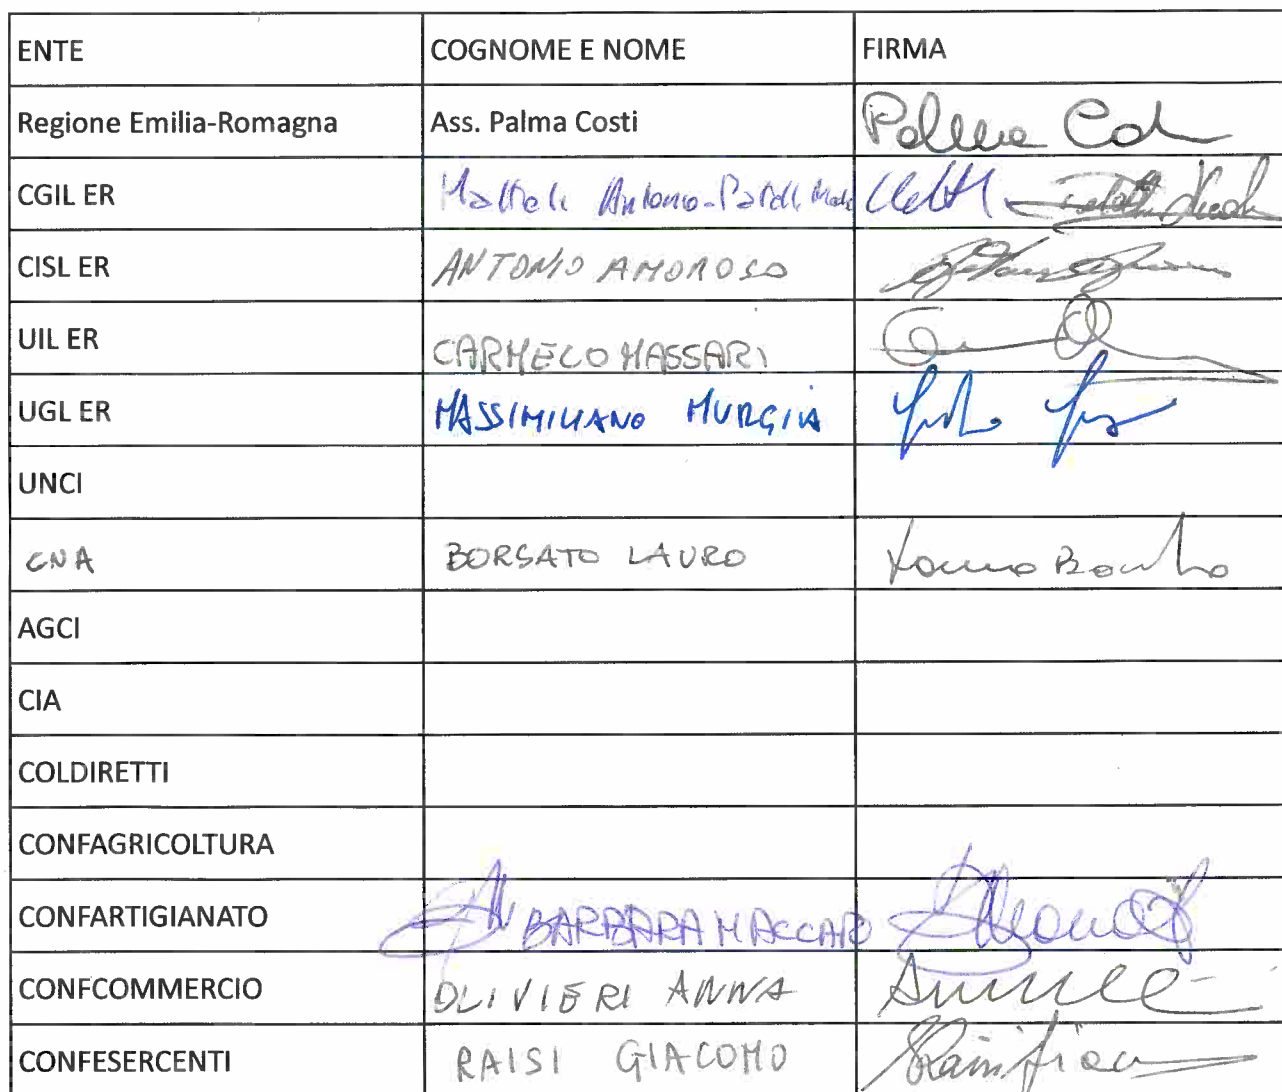 ENTE COGNOME E NOME FIRMA
Regione Emilia-Romagna Ass. Palma Costi Palma
CGIL ER Antonio
CISL ER ANTONIO AMOROSO
UIL ER CARMELO MASSARI
UGL ER MASSIMILIANO MURGIA
UNCI
CNA BORSATO LAURO
AGCI
CIA
COLDIRETTI
CONFAGRICOLTURA
CONFARTIGIANATO BARBARA MACCATO
CONFCOMMERCIO OLIVIERI ANNA
CONFESERCENTI RAISI GIACOMO